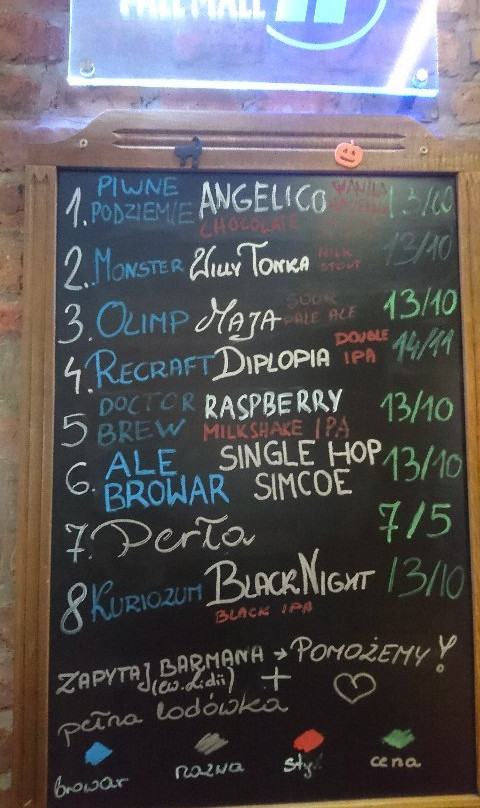 PALL MALL
1. PIWNE PODZIEMIE ANGELICO CHOCOLATE 13/
2. MONSTER Willy Tonka MILK STOUT 13/10
3. OLIMP MAJA SOUR PALE ALE 13/10
4. RECRAFT DIPLOPIA DOUBLE IPA 14/11
5 DOCTOR BREW RASPBERRY MILKSHAKE IPA 13/10
6. ALE BROWAR SINGLE HOP SIMCOE 13/10
7. Perła 7/5
8 KURIOZUM BLACK NIGHT BLACK IPA 13/10
ZAPYTAJ BARMANA → POMOŻEMY!
(ew. Lidii) + ♡
pełna lodówka
browar nazwa styl cena